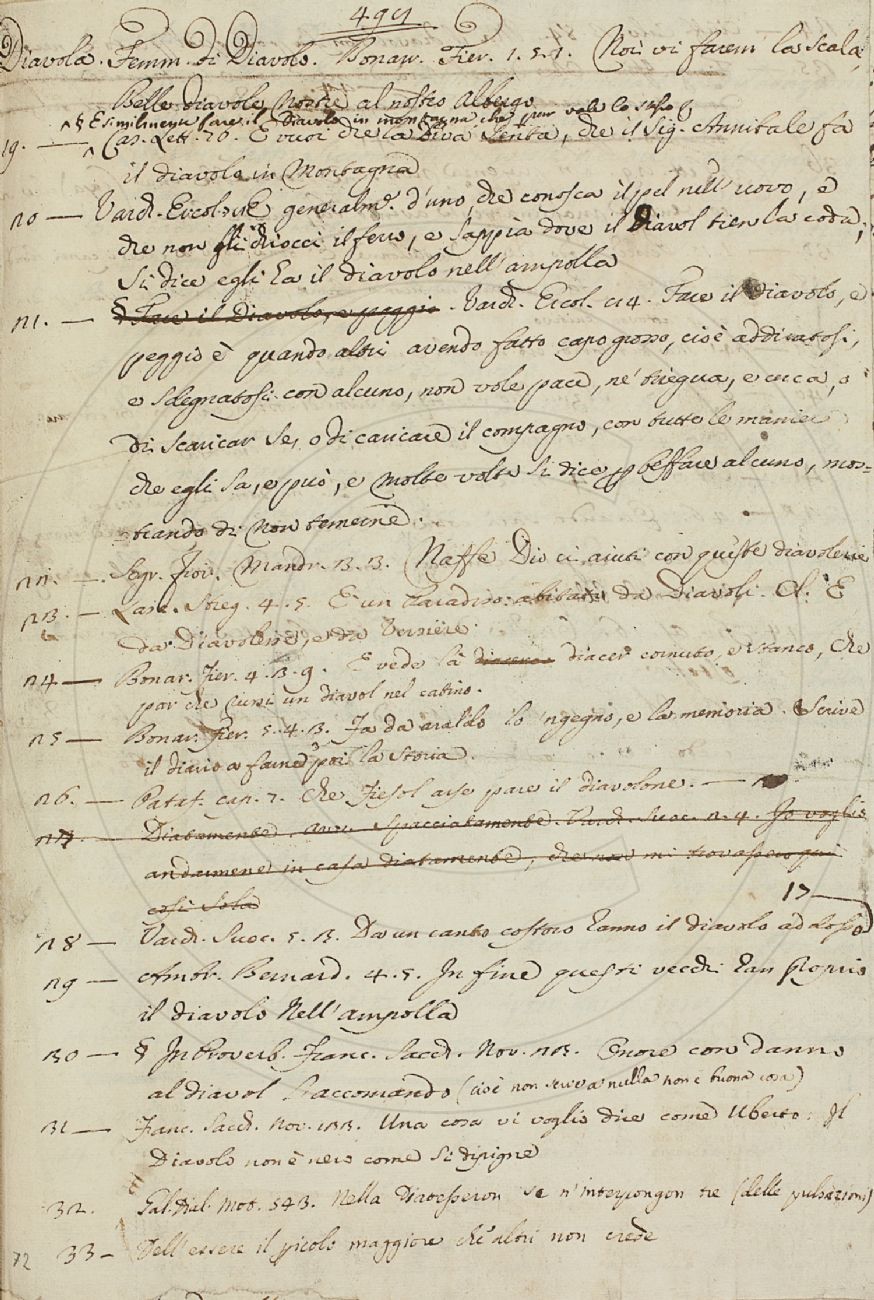 499
Diavola. Femm. di Diavolo. Bonarr. Fier. 1. 5. 1. Noi vi farem la scala,
Belle diavole nostre al nostro Albergo
^ § E similmente fare il Diavolo in montagna che pur vale lo stesso
19. — ^ Car. Lett. 26. E vuoi che la Diva senta, che il Sig. Annibale fa
il diavolo in Montagna
20 — Varch. Ercol. generalm.e d'uno, che conosca il pel nell'uovo, e
che non gli chiocci il ferro, e sappia dove il Diavol tien la coda,
si dice egli ha il diavolo nell'ampolla
21. — § Fare il Diavolo, e peggio. Varch. Ercol. Fare il Diavolo, e
peggio è quando altri avendo fatto capo grosso, cioè addiratosi,
e sdegnatosi con alcuno, non vole pace, ne' triegua, e cerca, o
di scaricar se, o di caricare il compagno, con tutte le maniere
che egli sa, e può, e molte volte si dice p beffare alcuno, mos=
trando di non temerne.
22. — Segr. Fior. Mandr. Naffe Dio ci aiuti con queste diavolerie
23. — Lasc. Streg. 4. 5. E un Paradiso abitato da Diavoli. Cl. E
da Diavolesse, e da Versiere
24 — Bonar. Fier. 4. 3. 9. E vede là diacer cornuto, e stanco, che
par che un diavol nel catino.
25 — Bonar. Fier. 5. 4. 3. Fa da araldo lo 'ngegno, e la memoria. Scrive
il diario a fame poi la storia.
26. — Pataf. cap. 7. Che Fiesol arse pare il diavolone. —
27. — Diatamente. avv. Spacciatamente. Varch. Suoc. 2. 4. Io voglio
andarmene in casa diatamente, che non mi trovassero qui
così sola
17 —
28 — Varch. Suoc. 5. 3. Da un canto costoro hanno il diavolo addosso
29 — Ambr. Bernard. 4. 5. In fine questi vecchi han propio
il diavolo nell'ampolla
30 — § In Proverb. Franc. Sacch. Nov. Onore con danno
al diavol l'accomando (cioè non serve a nulla non è buona cosa)
31 — Franc. Sacch. Nov. Una cosa vi voglio dire come Uberto: Il
Diavolo non è nero come si dipigne
32. Gal. Dial. Mot. 543. Nella Diatesseron se n'interpongon tre (delle pulsazioni)
33 — Dell'essere il picolo maggiore ch'altri non crede
72